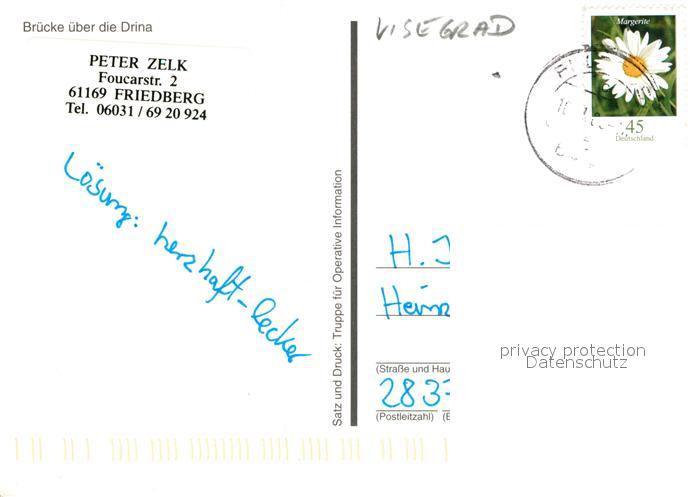 Brücke über die Drina
VISEGRAD
PETER ZELK
Foucarstr. 2
61169 FRIEDBERG
Tel. 06031/69 20 924
Margerite
45
Deutschland
Lösung: herzhaft-lecker
Satz und Druck: Truppe für Operative Information
H. J
Hein
(Straße und Hau
283
(Postleitzahl)
privacy protection
Datenschutz